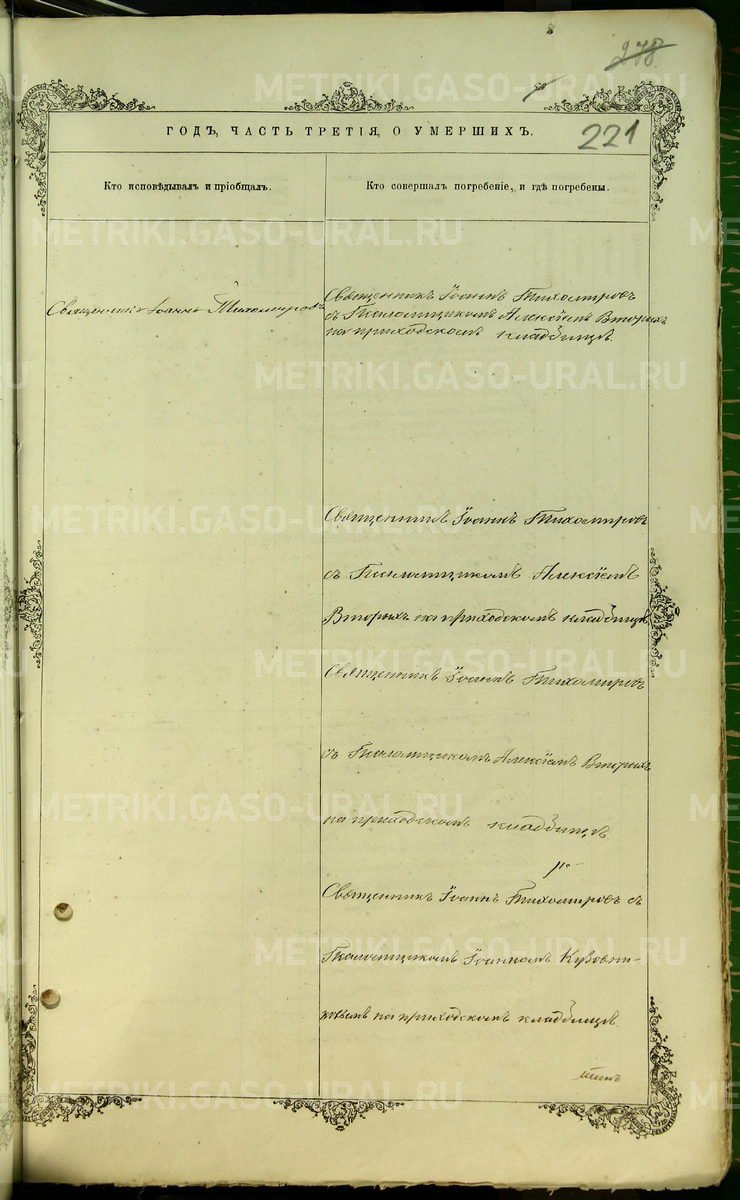 278.
221
ГОДЪ, ЧАСТЬ ТРЕТІЯ, О УМЕРШИХЪ.
Кто исповѣдывалъ и пріобщалъ.
Кто совершалъ погребеніе, и гдѣ погребены.
Священникъ Іоаннъ Тихомировъ
Священникъ Іоаннъ Тихомировъ
съ Псаломщикомъ Алексѣемъ Вторыхъ
на приходскомъ кладбищѣ.
Священникъ Іоаннъ Тихомировъ
съ Псаломщикомъ Алексѣемъ
Вторыхъ на приходскомъ кладбищѣ
Священникъ Іоаннъ Тихомировъ
съ Псаломщикомъ Алексѣемъ Вторыхъ
на приходскомъ кладбищѣ
Священникъ Іоаннъ Тихомировъ съ
Псаломщикомъ Іоанномъ Кузовни-
ковымъ на приходскомъ кладбищѣ.
METRIKI.GASO-URAL.RU